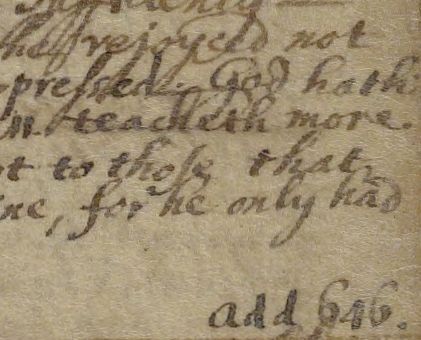 he rejoyced not
pressed. God hath
teacheth more.
t to those that
ine, for he only had
add 646.